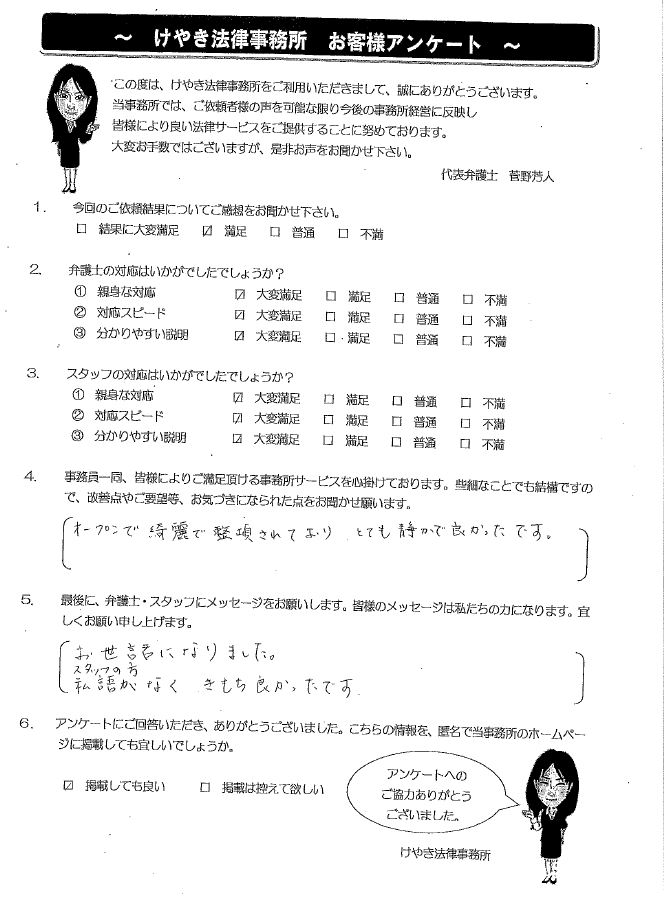 ～ けやき法律事務所 お客様アンケート ～
この度は、けやき法律事務所をご利用いただきまして、誠にありがとうございます。
当事務所では、ご依頼者様の声を可能な限り今後の事務所経営に反映し
皆様により良い法律サービスをご提供することに努めております。
大変お手数ではございますが、是非お声をお聞かせ下さい。
代表弁護士 菅野芳人
1. 今回のご依頼結果についてご感想をお聞かせ下さい。
□ 結果に大変満足 ☑ 満足 □ 普通 □ 不満
2. 弁護士の対応はいかがでしたでしょうか？
① 親身な対応 ☑ 大変満足 □ 満足 □ 普通 □ 不満
② 対応スピード ☑ 大変満足 □ 満足 □ 普通 □ 不満
③ 分かりやすい説明 ☑ 大変満足 □ 満足 □ 普通 □ 不満
3. スタッフの対応はいかがでしたでしょうか？
① 親身な対応 ☑ 大変満足 □ 満足 □ 普通 □ 不満
② 対応スピード ☑ 大変満足 □ 満足 □ 普通 □ 不満
③ 分かりやすい説明 ☑ 大変満足 □ 満足 □ 普通 □ 不満
4. 事務員一同、皆様によりご満足頂ける事務所サービスを心掛けております。些細なことでも結構ですの
で、改善点やご要望等、お気づきになられた点をお聞かせ願います。
オープンで綺麗で整頓されており とても静かで良かったです。
5. 最後に、弁護士・スタッフにメッセージをお願いします。皆様のメッセージは私たちの力になります。宜
しくお願い申し上げます。
お世話になりました。
スタッフの方
私語がなく きもち良かったです
6. アンケートにご回答いただき、ありがとうございました。こちらの情報を、匿名で当事務所のホームペー
ジに掲載しても宜しいでしょうか。
☑ 掲載しても良い □ 掲載は控えて欲しい
アンケートへの
ご協力ありがとう
ございました。
けやき法律事務所